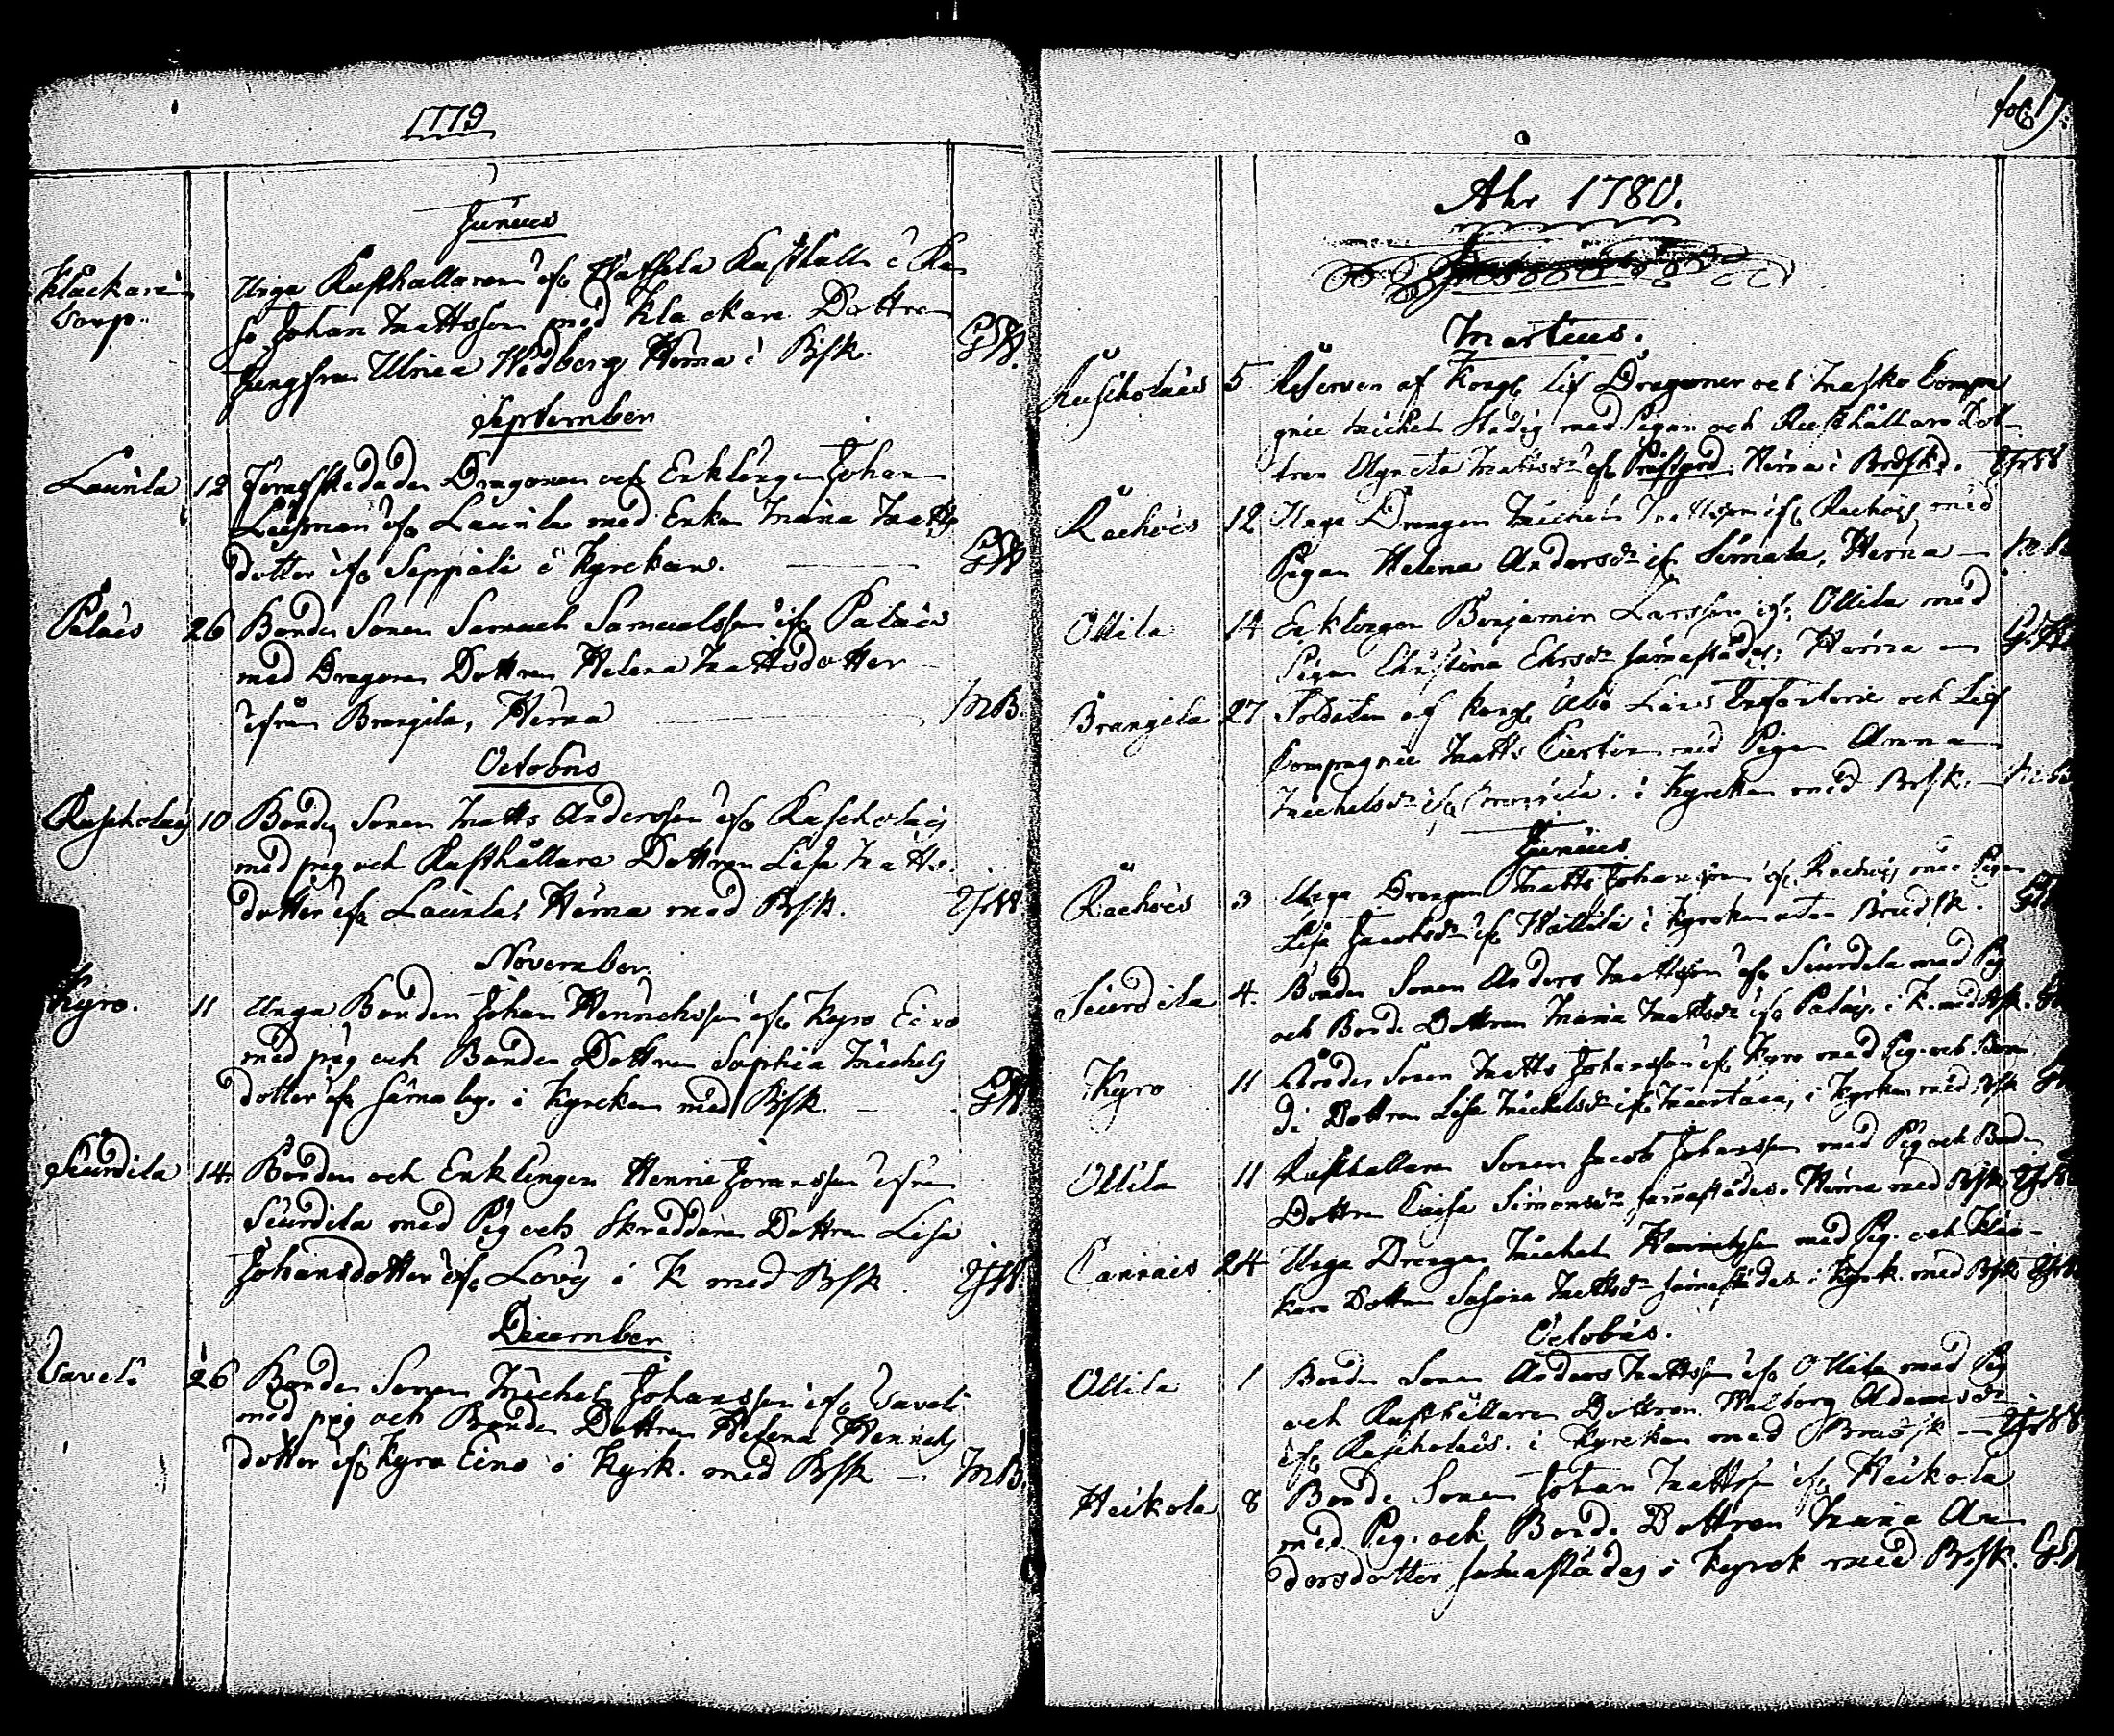 1779
Junius
Klackare Torp. Unga Rusthållaren ifr. Hatsela Rusthåll i
so Johan Mattsson med Klackare Dottren
Jungfrun Ulrica Widberg Hema i Bsk.
September
Launla 12 Dragonen och Enklingen Johan
Lejsman ifr. Launla med Enkan Maria Matts
dotter ifr. Seppälä i Kyrckan.
Palais 26 Bonde Sonen Samuel Samuelsson ifr. Palais
med Dragone Dottren Helena Mattsdotter
ifrån Brangila, Hema MB.
Octobris
Ruscholais 10 Bonde Sonen Matts Andersson ifr. Ruscholais
med pig och Rusthållare Dottren Lisa Matts
dotter ifr. Launla, Hema med Bsk.
November.
Kyro. 11 Unga Bonden Johan Hennichsson ifr. Kyro Eino
med pig och Bonde Dottren Sophia Michels
dotter ifr. samma by. i Kyrckan med Bsk.
Seurdila 14. Bonden och Enklingen Henric Joransson ifrån
Seurdila med Pig och Skreddare Dottren Lisa
Johansdotter ifr. Lovis i K med Bsk
December
Saveli 26 Bonde Sonen Michel Johansson ifr. Saveli
med pig och Bonde Dottren Helena Hennichs
dotter ifr. Kyro Eino i Kyrk. med Bsk MB.
fol 17.
Ahr 1780.
Martius.
Ruscholais 5 Reserven af Kongl. Lif Dragoner och Masko Compa
gnie Michel Stadig med Pigan och Rusthållare Dot
tren Agneta Mattsdr ifr. Prästgård Hema i Brdsk.
Rachois 12 Unga Drengen Michel Mattsson ifr. Rachois med
Pigan Helena Andersdr ifr. Simala, Hema
Ollila 14 Enklingen Benjamin Larsson ifr. Ollila med
Pigan Christina Ehrsdr sammastädes. Hemma
Brangila 27 Soldaten af Kongl. Åbo Läns Infanterie och Lif
Compagnie Matts Curtin med Pigan Anna
Michelsdr ifr. i Kyrckan med Bsk.
Junius
Rachois 3 Unga Drengen Matts Johansson ifr. Rachois med Pigan
Lisa Jacobsdr ifr. Wallila i Kyrckan utan Brudsk.
Seurdila 4. Bonde Sonen Anders Mattsson ifr. Seurdila med Pig
och Bonde Dottren Maria Mattsdr ifr. Palais. i K. med Bsk.
Kyro 11 Bonde Sonen Matts Johansson ifr. Kyro med Pig. och Bon
de Dottren Lisa Michelsdr ifr. i Kyrckan med Bsk
Ollila 11 Rusthållare Sonen Jacob Johansson med Pig och Bonde
Dottren Caisa Simonsdr sammastädes. Hema med Bsk
Cannais 24 Unga Drengen Michel Hennichsson med Pig. och Klac-
kare Dottren Mattsdr sammastädes i Kyrk. med Bsk
Octobris.
Ollila 1 Bonde Sonen Anders Mattsson ifr. Ollila med Pig
och Rusthållare Dottren Walborg Adamsdr
ifr. Ruscholais. i Kyrckan med Brudsk
Heikola 8 Bonde Sonen Johan Mattsson ifr. Heikola
med Pig. och Bonde Dottren Maria An
dersdotter sammastädes i Kyrck med Bsk.